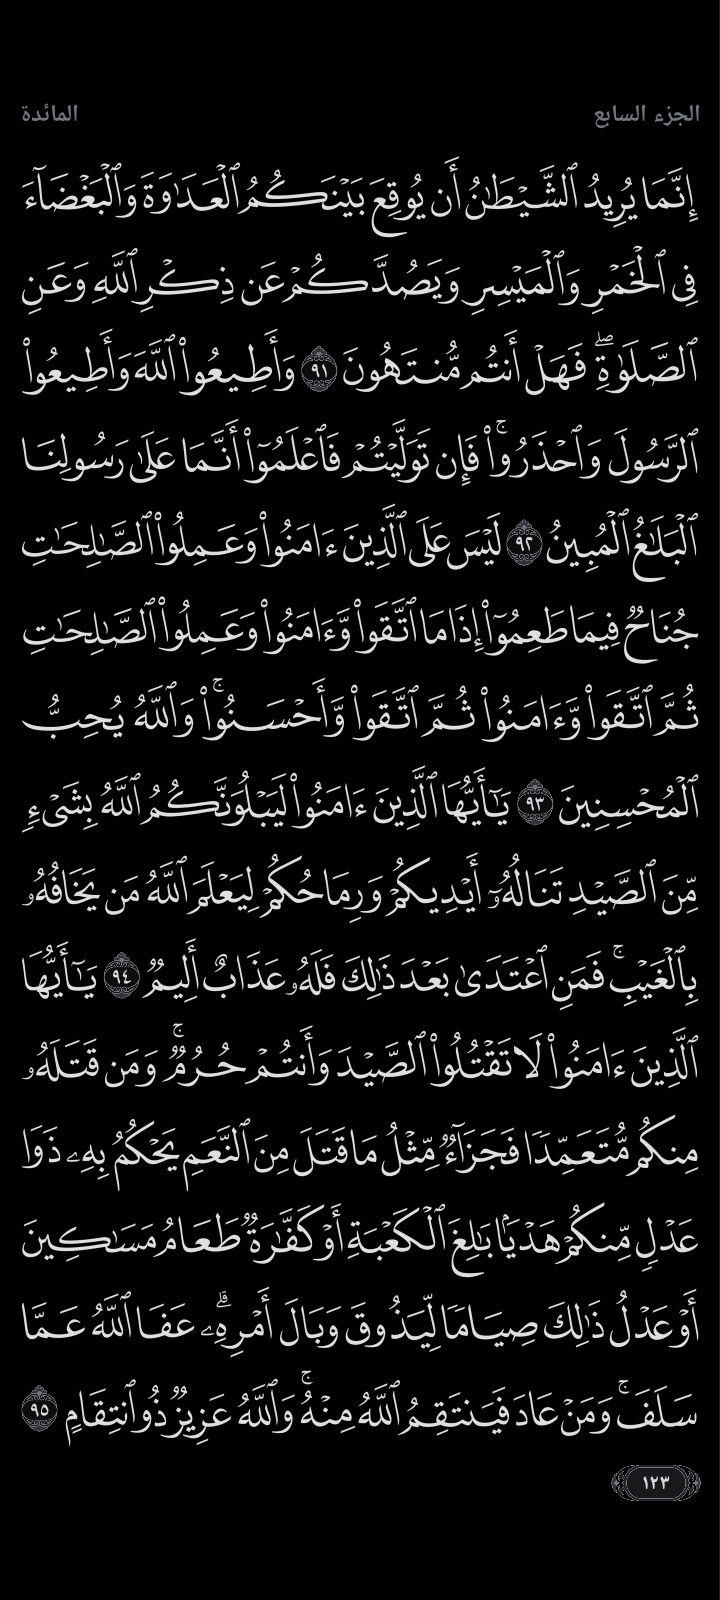 الجزء السابع
المائدة
إِنَّمَا يُرِيدُ ٱلشَّيۡطَٰنُ أَن يُوقِعَ بَيۡنَكُمُ ٱلۡعَدَٰوَةَ وَٱلۡبَغۡضَآءَ
فِي ٱلۡخَمۡرِ وَٱلۡمَيۡسِرِ وَيَصُدَّكُمۡ عَن ذِكۡرِ ٱللَّهِ وَعَنِ
ٱلصَّلَوٰةِۖ فَهَلۡ أَنتُم مُّنتَهُونَ ٩١ وَأَطِيعُواْ ٱللَّهَ وَأَطِيعُواْ
ٱلرَّسُولَ وَٱحۡذَرُواْۚ فَإِن تَوَلَّيۡتُمۡ فَٱعۡلَمُوٓاْ أَنَّمَا عَلَىٰ رَسُولِنَا
ٱلۡبَلَٰغُ ٱلۡمُبِينُ ٩٢ لَيۡسَ عَلَى ٱلَّذِينَ ءَامَنُواْ وَعَمِلُواْ ٱلصَّٰلِحَٰتِ
جُنَاحٞ فِيمَا طَعِمُوٓاْ إِذَا مَا ٱتَّقَواْ وَّءَامَنُواْ وَعَمِلُواْ ٱلصَّٰلِحَٰتِ
ثُمَّ ٱتَّقَواْ وَّءَامَنُواْ ثُمَّ ٱتَّقَواْ وَّأَحۡسَنُواْۚ وَٱللَّهُ يُحِبُّ
ٱلۡمُحۡسِنِينَ ٩٣ يَٰٓأَيُّهَا ٱلَّذِينَ ءَامَنُواْ لَيَبۡلُوَنَّكُمُ ٱللَّهُ بِشَيۡءٖ
مِّنَ ٱلصَّيۡدِ تَنَالُهُۥٓ أَيۡدِيكُمۡ وَرِمَاحُكُمۡ لِيَعۡلَمَ ٱللَّهُ مَن يَخَافُهُۥ
بِٱلۡغَيۡبِۚ فَمَنِ ٱعۡتَدَىٰ بَعۡدَ ذَٰلِكَ فَلَهُۥ عَذَابٌ أَلِيمٞ ٩٤ يَٰٓأَيُّهَا
ٱلَّذِينَ ءَامَنُواْ لَا تَقۡتُلُواْ ٱلصَّيۡدَ وَأَنتُمۡ حُرُمٞۚ وَمَن قَتَلَهُۥ
مِنكُم مُّتَعَمِّدٗا فَجَزَآءٞ مِّثۡلُ مَا قَتَلَ مِنَ ٱلنَّعَمِ يَحۡكُمُ بِهِۦ ذَوَا
عَدۡلٖ مِّنكُمۡ هَدۡيَۢا بَٰلِغَ ٱلۡكَعۡبَةِ أَوۡ كَفَّٰرَةٞ طَعَامُ مَسَٰكِينَ
أَوۡ عَدۡلُ ذَٰلِكَ صِيَامٗا لِّيَذُوقَ وَبَالَ أَمۡرِهِۦۗ عَفَا ٱللَّهُ عَمَّا
سَلَفَۚ وَمَنۡ عَادَ فَيَنتَقِمُ ٱللَّهُ مِنۡهُۚ وَٱللَّهُ عَزِيزٞ ذُو ٱنتِقَامٍ ٩٥
١٢٣